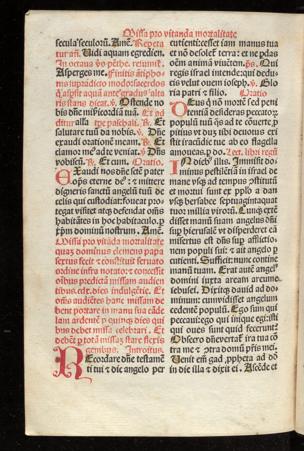 Missa pro vitanda mortalitate
secula seculorū. Amē. Repeta
tur añ. Vidi aquam egredien.
In octava vo pēthe. reiumē.
Asperges me. Finitis antipho-
nis supradicto modo sacerdos
stans dicat. v̄. Ostende no
bis dñe miam tuā. Et ad
salutare tuū da nobis. v̄. Dñe
exaudi orationē meam. R̄. Et
clamor me⁹ ad te veniat. v̄. Dñs
vobiscū. R̄. Et cum. Oratio.
Exaudi nos dñe scte pater
ops eterne de⁹: ⁊ mittere
digneris sanctū angelū tuū de
celis qui custodiat: foueat pro
tegat visitet atq₃ defendat oms
habitātes in hoc habitaculo. p
xpm dominū nostrum. Amē.
Missa pro vitāda mortalitate
quaȝ dominus clemens papa
sextus fecit ⁊ constituit seruato
ordine infra notato: ⁊ concessit
oībus predictā missam audien
tibus. cclx. dies indulgētie. Et
oms audiētes hanc missam de
bent portare in manu suā cāde
lam ardentē p quinq₃ dies qui
bus debet missa celebrari. Et
debēt p totā missaȝ stare flexis
genibus. Introitus.
Recordare dñe testamē
ti tui ⁊ dic angelo per
cutienti: cesset iam manus tua
et nō desolet terra: et ne pdas
oēm animā viuētem. ps. Qui
regis israel intende: qui deduc-
is velut ouem ioseph. v̄. Glo
ria patri ⁊ filio. Oratio
Deus q̄ nō mortē sed peni
tentiā desideras peccatorȝ
populū tuū q̄s ad te cōuertē p
pitius vt dum tibi deuotus exi
stit iracūdie tue ab eo flagella
amoueas. p do. 2c̄. libri regū
In dieb⁹ illis. Immisit do-
minus pestilētiā in israel de
mane vsq₃ ad tempus pstitutū
et mortui sunt ex pplo a dan
vsq₃ bersabee septuagintaquat
tuor millia virorū. Cunq₃ extē
disset manū suam angelus dñi
sup hierusalē vt disperderet eā
misertus est dñs sup afflictio
nem populi sui: ⁊ ait angelo p
cutienti. Sufficit: nunc contine
manū tuam. Erat autē angel⁹
domini iuxta aream areune
iebusei. Dixitq₃ dauid ad do-
minum: cum vidisset angelum
cedentē populū. Ego sum qui
peccaui: ego qui inique egi: isti
qui oues sunt quid fecerunt?
Obsecro auertat̄ ira tua cō
tra me ⁊ ⁊tra domū pr̄is mei.
Venit em̄ gad ppheta ad dd
in die illa ⁊ dixit ei. Ascēde et